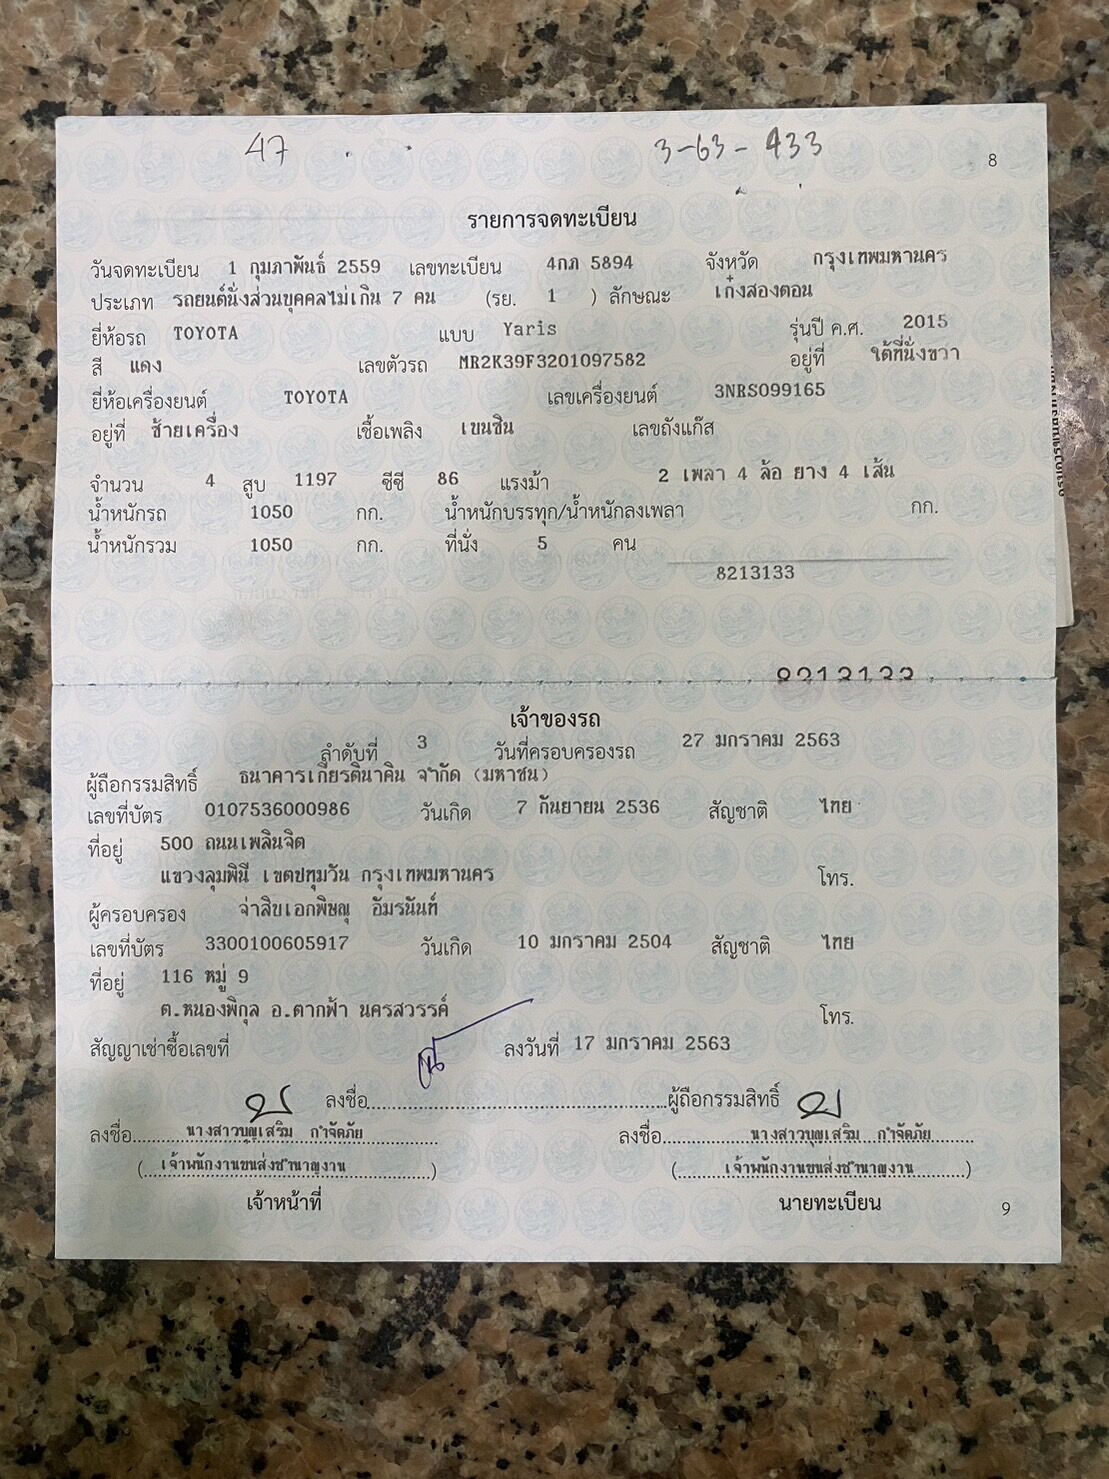 47 3-63-433
8
รายการจดทะเบียน
วันจดทะเบียน 1 กุมภาพันธ์ 2559 เลขทะเบียน 4กภ 5894 จังหวัด กรุงเทพมหานคร
ประเภท รถยนต์นั่งส่วนบุคคลไม่เกิน 7 คน (รย. 1 ) ลักษณะ เก๋งสองตอน
ยี่ห้อรถ TOYOTA แบบ Yaris รุ่นปี ค.ศ. 2015
สี แดง เลขตัวรถ MR2K39F3201097582 อยู่ที่ ใต้ที่นั่งขวา
ยี่ห้อเครื่องยนต์ TOYOTA เลขเครื่องยนต์ 3NRS099165
อยู่ที่ ซ้ายเครื่อง เชื้อเพลิง เบนซิน เลขถังแก๊ส
จำนวน 4 สูบ 1197 ซีซี 86 แรงม้า 2 เพลา 4 ล้อ ยาง 4 เส้น
น้ำหนักรถ 1050 กก. น้ำหนักบรรทุก/น้ำหนักลงเพลา กก.
น้ำหนักรวม 1050 กก. ที่นั่ง 5 คน
8213133
8213133
เจ้าของรถ
ลำดับที่ 3 วันที่ครอบครองรถ 27 มกราคม 2563
ผู้ถือกรรมสิทธิ์ ธนาคารเกียรตินาคิน จำกัด (มหาชน)
เลขที่บัตร 0107536000986 วันเกิด 7 กันยายน 2536 สัญชาติ ไทย
ที่อยู่ 500 ถนนเพลินจิต
แขวงลุมพินี เขตปทุมวัน กรุงเทพมหานคร โทร.
ผู้ครอบครอง จ่าสิบเอกพิษณุ อัมรนันท์
เลขที่บัตร 3300100605917 วันเกิด 10 มกราคม 2504 สัญชาติ ไทย
ที่อยู่ 116 หมู่ 9
ต.หนองพิกุล อ.ตากฟ้า นครสวรรค์ โทร.
สัญญาเช่าซื้อเลขที่ ลงวันที่ 17 มกราคม 2563
ลงชื่อ ผู้ถือกรรมสิทธิ์
ลงชื่อ นางสาวบุญเสริม กำจัดภัย ลงชื่อ นางสาวบุญเสริม กำจัดภัย
(เจ้าพนักงานขนส่งชำนาญงาน) (เจ้าพนักงานขนส่งชำนาญงาน)
เจ้าหน้าที่ นายทะเบียน
9